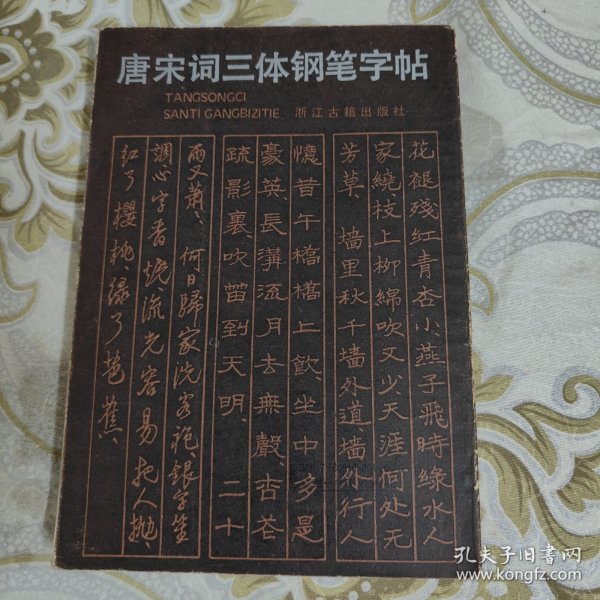 唐宋词三体钢笔字帖
TANGSONGCI
SANTI GANGBIZITIE 浙江古籍出版社
花褪殘红青杏小、燕子飛時绿水人
家繞枝上柳綿吹又少、天涯何处无
芳草、墙里秋千墙外道、墙外行人
憶昔午橋橋上飲、坐中多是
豪英、長溝流月去無聲、杏花
疏影裏、吹笛到天明、二十
雨又蕭々、何日歸家洗客袍、銀字笙
調心字香燒、流光容易把人抛、
红了櫻桃、绿了芭蕉、
孔夫子旧书网
www.kongfz.com